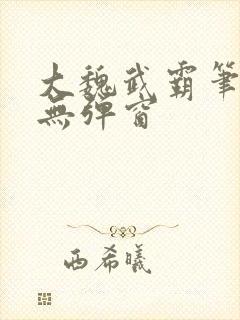 大魏武霸筆
無彈窗
西希曦